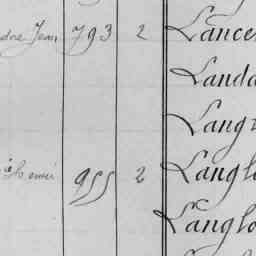 dre Jean 793 2 Lance
Landa
Lang
955 2 Langl
Langlo